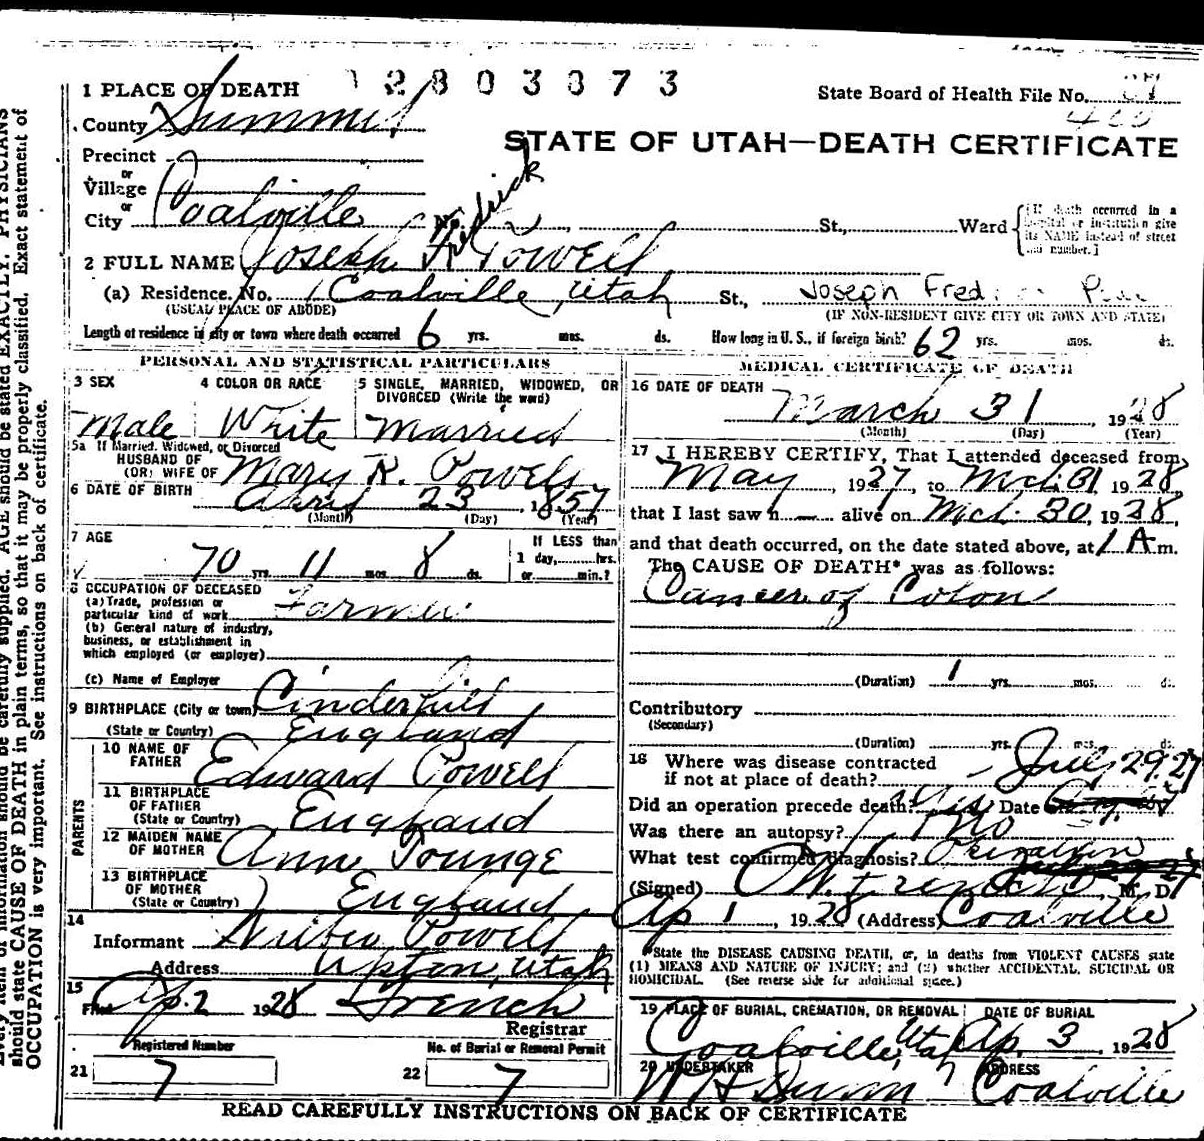 2803073
1 PLACE OF DEATH
State Board of Health File No.
County Summit
STATE OF UTAH—DEATH CERTIFICATE
Precinct
or
Village
or
City Coalville No. St., Ward
[If death occurred in a hospital or institution give its NAME instead of street and number.]
Fredrick
2 FULL NAME Joseph F. Powell
(a) Residence. No. Coalville, Utah St., Joseph Fred
(USUAL PLACE OF ABODE) (IF NON-RESIDENT GIVE CITY OR TOWN AND STATE)
Length of residence in city or town where death occurred 6 yrs. mos. ds. How long in U. S., if foreign birth? 62 yrs. mos. ds.
PERSONAL AND STATISTICAL PARTICULARS
3 SEX Male
4 COLOR OR RACE White
5 SINGLE, MARRIED, WIDOWED, OR DIVORCED (Write the word) Married
5a If Married, Widowed, or Divorced
HUSBAND OF
(OR) WIFE OF Mary R. Powell
6 DATE OF BIRTH April 23, 1857
(Month) (Day) (Year)
7 AGE 70 yrs. 11 mos. 8 ds.
If LESS than
1 day,......hrs.
or......min.?
8 OCCUPATION OF DECEASED
(a) Trade, profession or
particular kind of work Farmer
(b) General nature of industry,
business, or establishment in
which employed (or employer)
(c) Name of Employer
9 BIRTHPLACE (City or town) Cinderhill
(State or Country) England
PARENTS
10 NAME OF FATHER Edward Powell
11 BIRTHPLACE OF FATHER
(State or Country) England
12 MAIDEN NAME OF MOTHER Ann Younge
13 BIRTHPLACE OF MOTHER
(State or Country) England
14
Informant Powell
Address Upton, Utah
15
Filed Ap. 2 1928 French
Registrar
Registered Number
21 7
No. of Burial or Removal Permit
22 7
MEDICAL CERTIFICATE OF DEATH
16 DATE OF DEATH March 31 1928
(Month) (Day) (Year)
17 I HEREBY CERTIFY, That I attended deceased from
May, 1927, to Mch. 31 1928
that I last saw h alive on Mch. 30, 1928,
and that death occurred, on the date stated above, at 1 A m.
The CAUSE OF DEATH* was as follows:
Cancer of Colon
(Duration) 1 yrs. mos. ds.
Contributory
(Secondary)
(Duration) yrs. mos. ds.
18 Where was disease contracted
if not at place of death?
July 29. 27
Did an operation precede death? Yes Date
Was there an autopsy? No
What test confirmed diagnosis?
(Signed) M. D.
Ap 1, 1928 (Address) Coalville
*State the DISEASE CAUSING DEATH, or, in deaths from VIOLENT CAUSES state
(1) MEANS AND NATURE OF INJURY; and (2) whether ACCIDENTAL, SUICIDAL OR
HOMICIDAL. (See reverse side for additional space.)
19 PLACE OF BURIAL, CREMATION, OR REMOVAL Coalville, Utah
DATE OF BURIAL Ap. 3, 1928
20 UNDERTAKER W H Dunn
ADDRESS Coalville
READ CAREFULLY INSTRUCTIONS ON BACK OF CERTIFICATE
should be carefully supplied. AGE should be stated EXACTLY. PHYSICIANS
should state CAUSE OF DEATH in plain terms, so that it may be properly classified. Exact statement of
OCCUPATION is very important. See instructions on back of certificate.